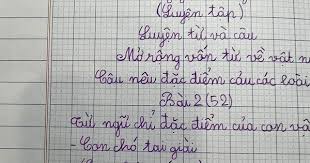 (Luyện tập)
Luyện từ và câu
Mở rộng vốn từ về vật n
Câu nêu đặc điểm của các loài
Bài 2 (52)
Từ ngữ chỉ đặc điểm của con vậ
- Con chó tai giài